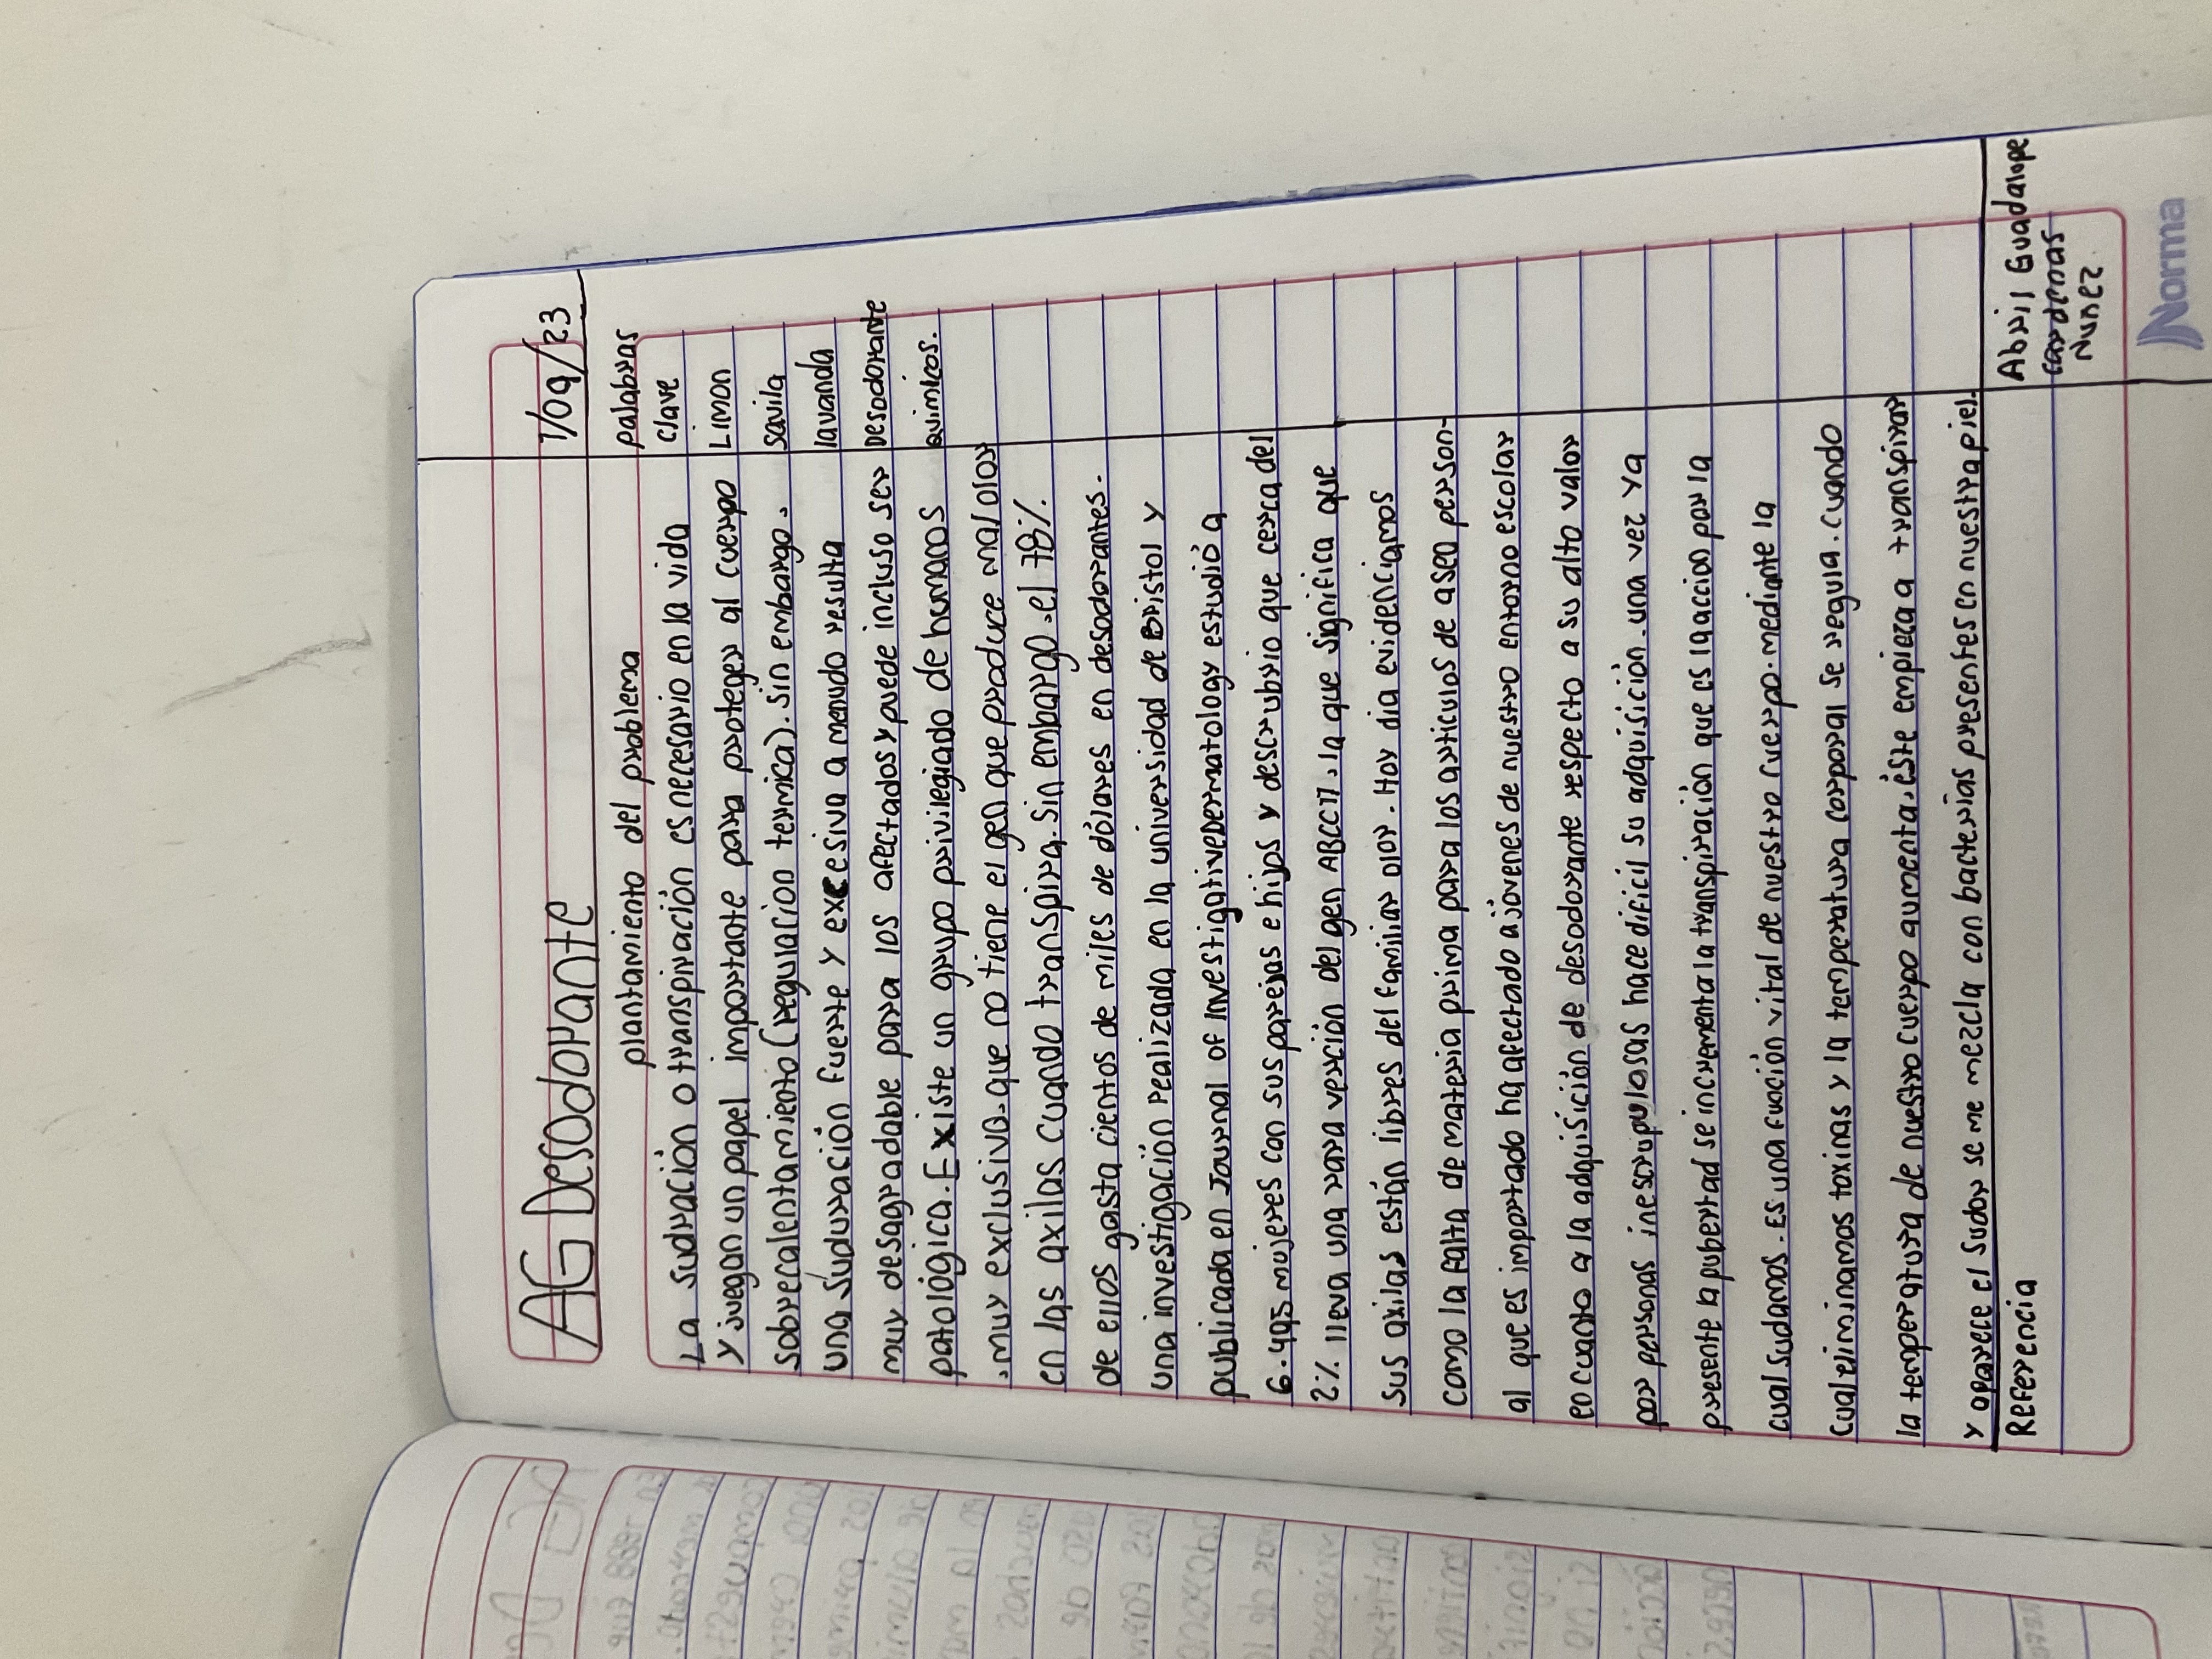 AG Desodorante
7/09/23
plantamiento del problema
La sudración o transpiración es necesario en la vida
y juegan un papel importante para proteger al cuerpo
sobrecalentamiento (regulacion termica). sin embargo.
una sudurración fuerte y excesiva a menudo resulta
muy desagradable para los afectados y puede incluso ser
patológica. Existe un grupo privilegiado de humanos
.muy exclusivo. que no tiene el gen que produce mal olor
en las axilas cuando transpira. sin embargo. el 78%.
de ellos gasta cientos de miles de dólares en desodorantes.
una investigación realizada en la universidad de Bristol y
publicada en Journal of Investigative Dermatology estudió a
6.495 mujeres con sus parejas e hijos y descubrio que cerca del
2% lleva una rara verción del gen ABCC11. la que significa que
sus axilas están libres del familiar olor. Hoy dia evidenciamos
como la falta de materia prima para los articulos de aseo person-
al que es importado ha afectado a jóvenes de nuestro entorno escolar
en cuanto a la adquisición de desodorante respecto a su alto valor
por personas inescrupulosas hace dificil su adquisición. una vez ya
presente la pubertad se incrementa la transpiración que es la accion por la
cual sudamos. Es una fución vital de nuestro cuerpo. mediante la
cual eliminamos toxinas y la temperatura corporal se regula. cuando
la temperatura de nuestro cuerpo aumenta, éste empieza a transpirar
y aparece el sudor se me mezcla con bacterias presentes en nuestra piel.
palabras
clave
Limon
savila
lavanda
Desodorante
quimicos.
Referencia
Abril Guadalupe
cardenas
Nuñez
Norma